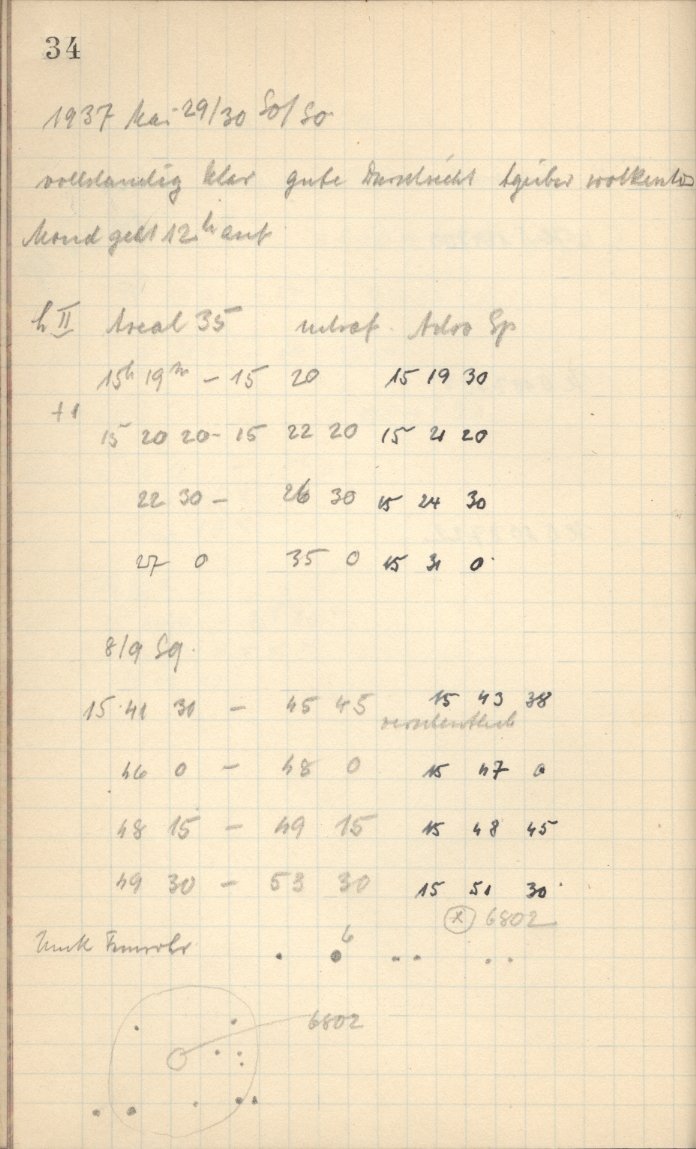 34
1937 Mai 29/30 So/So
vollständig klar gute Durchsicht wolkenlos
Mond geht 12h auf
h II Areal 35 Astro Sp
15h 19m - 15 20 15 19 30
+1
15 20 20 - 15 22 20 15 21 20
22 30 - 26 30 15 24 30
27 0 35 0 15 31 0
8/9 Sq
15 41 30 - 45 45 15 43 38
versehentlich
46 0 - 48 0 15 47 0
48 15 - 49 15 15 48 45
49 30 - 53 30 15 51 30
6802
6
6802